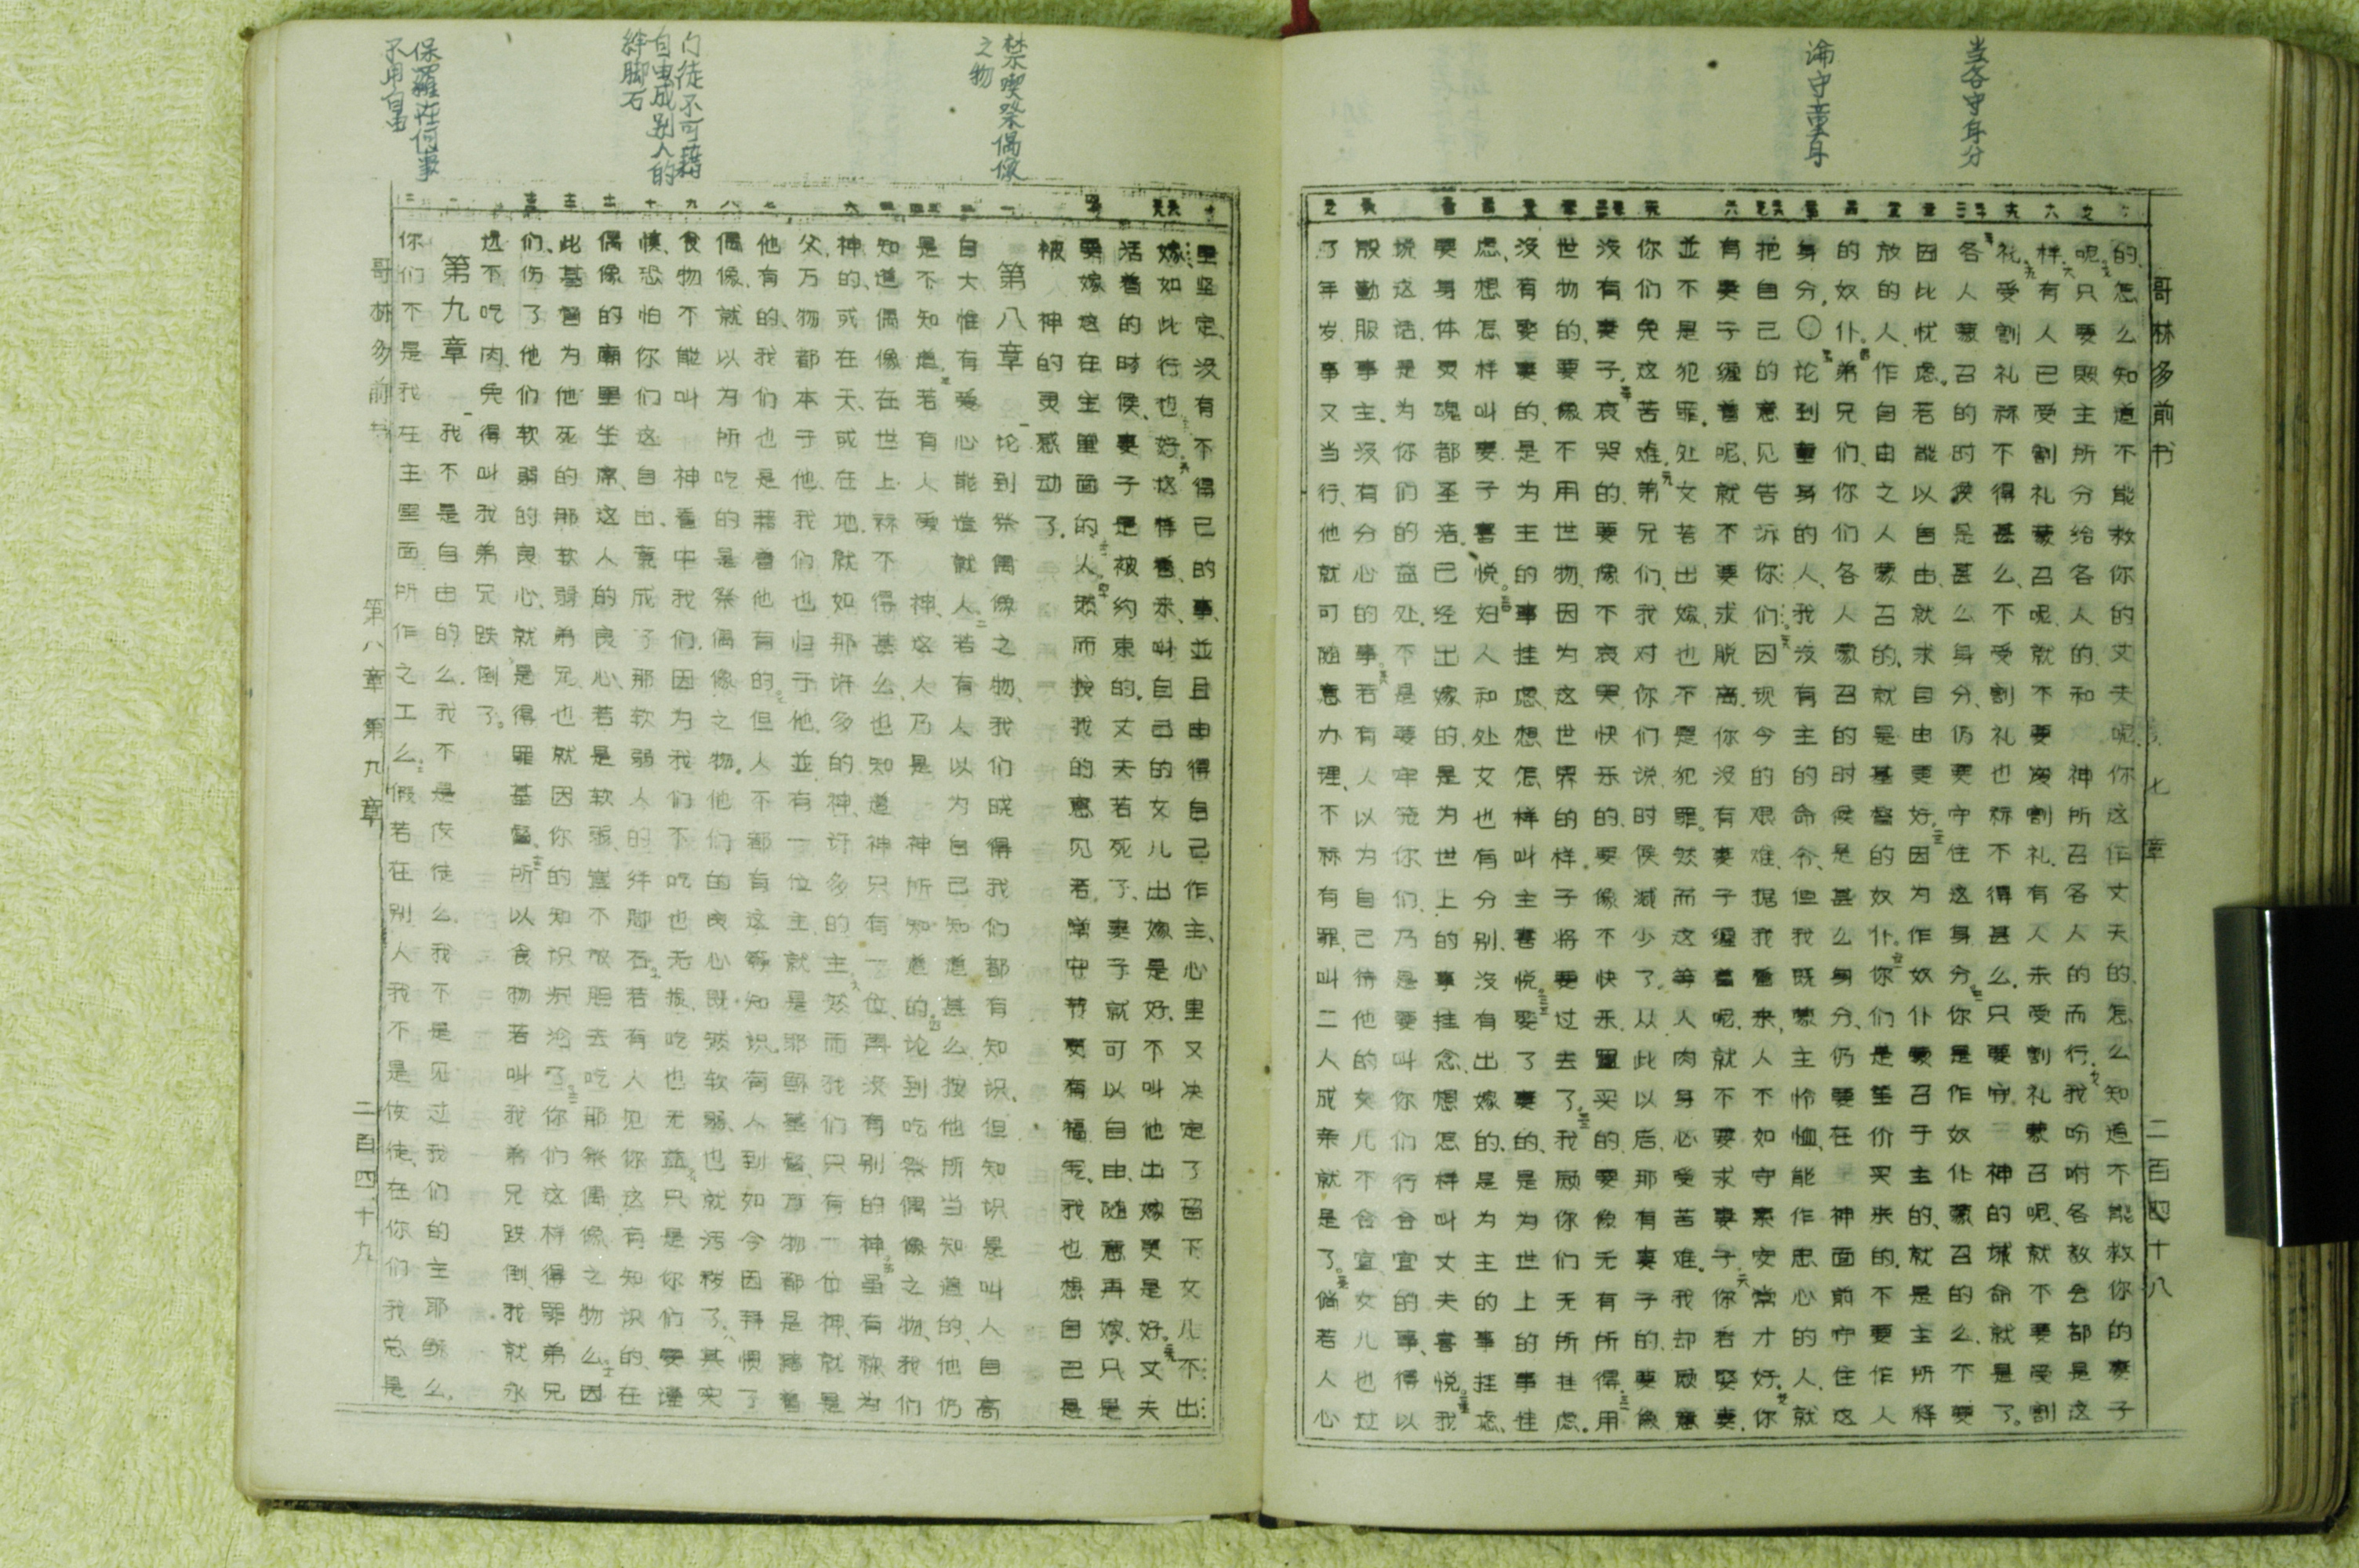 当各守身分
论守童身
哥林多前书 第七章 二百四十八
的、怎么知道不能救你的丈夫呢、你这作丈夫的、怎么知道不能救你的妻子
呢。只要照主所分给各人的、和 神所召各人的而行、我吩咐各教会都是这
样。有人已受割礼蒙召呢、就不要废割礼、有人未受割礼蒙召呢、就不要受割
礼。受割礼称不得甚么、不受割礼也称不得甚么、只要守 神的城命就是了。
各人蒙召的时候是甚么身分、仍要守住这身分。你是作奴仆蒙召的么、不要
因此忧虑。若能以自由、就求自由更好。因为作奴仆蒙召于主的、就是主所释
放的人、作自由之人蒙召的、就是基督的奴仆。你们是重价买来的、不要作人
的奴仆。弟兄们、你们各人蒙召的时候是甚么身分、仍要在 神面前守住这
身分。〇论到童身的人、我没有主的命令、但我既蒙主怜恤、能作忠心的人、就
把自己的意见告诉你们、因现今的艰难、据我看来、人不如守素安常才好。你
有妻子缠着呢、就不要求脱离、你没有妻子缠着呢、就不要求妻子。你若娶妻、
並不是犯罪、处女若出嫁、也不是犯罪。然而这等人肉身必受苦难、我却愿意
你们免这苦难。弟兄们、我对你们说、时候减少了、从此以后、那有妻子的、要像
没有妻子、哀哭的、要像不哀哭、快乐的、要像不快乐、置买的、要像无有所得、用
世物的、要像不用世物、因为这世界的样子将要过去了。我愿你们无所挂虑。
没有娶妻的、是为主的事挂虑、想怎样叫主喜悦。娶了妻的、是为世上的事挂
虑、想怎样叫妻子喜悦。妇人和处女也有分别、没有出嫁的、是为主的事挂虑、
要身体灵魂都圣洁、已经出嫁的、是为世上的事挂念、想怎样叫丈夫喜悦。我
说这话是为你们的益处、不是要牢笼你们、乃是要叫你们行合宜的事、得以
殷勤服事主、没有分心的事。若有人以为自己待他的女儿不合宜、女儿也过
了年岁、事又当行、他就可随意办理、不称有罪、叫二人成亲就是了。倘若人心
禁喫祭偶像之物
门徒不可藉自由成别人的绊脚石
保羅在何事不用自由
里坚定、没有不得已的事、並且由得自己作主、心里又决定了留下女儿不出
嫁、如此行也好。这样看来、叫自己的女儿出嫁是好、不叫他出嫁更是好。丈夫
活着的时候、妻子是被约束的、丈夫若死了、妻子就可以自由、随意再嫁、只是
要嫁这在主里面的人。然而按我的意见、若常守节更有福气、我也想自己是
被 神的灵感动了。
第八章 论到祭偶像之物、我们晓得我们都有知识。但知识是叫人自高
自大、惟有爱心能造就人。若有人以为自己知道甚么、按他所当知道的、他仍
是不知道。若有人爱 神、这人乃是 神所知道的。论到吃祭偶像之物、我们
知道偶像在世上称不得甚么、也知道 神只有一位、再没有别的神。虽有称为
神的、或在天、或在地、就如那许多的神、许多的主、然而我们只有一位神、就是
父、万物都本于他、我们也归于他、並有一位主、就是耶稣基督、万物都是藉着
他有的、我们也是藉着他有的。但人不都有这等知识。有人到如今因拜惯了
偶像、就以为所吃的是祭偶像之物。他们的良心既然软弱、也就污秽了、其实
食物不能叫 神看中我们、因为我们不吃也无损、吃也无益。只是你们要谨
慎、恐怕你们这自由、竟成了那软弱人的绊脚石。若有人见你这有知识的、在
偶像的庙里坐席、这人的良心、若是软弱、岂不放胆去吃那祭偶像之物么。因
此、基督为他死的那软弱弟兄、也就因你的知识沉沦了。你们这样得罪弟兄
们、伤了他们软弱的良心、就是得罪基督。所以食物若叫我弟兄跌倒、我就永
远不吃肉、免得叫我弟兄跌倒了。
第九章 我不是自由的么、我不是使徒么、我不是见过我们的主耶稣么、
你们不是我在主里面所作之工么。假若在别人我不是使徒、在你们我总是
哥林多前书 第八章 第九章 二百四十九